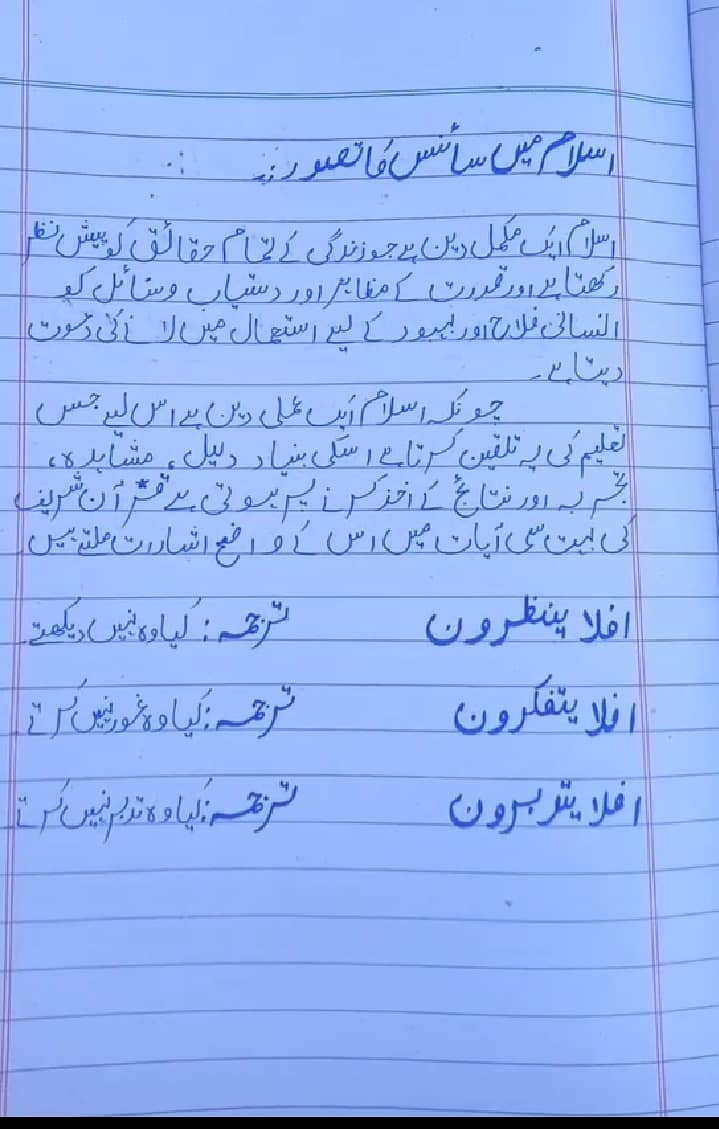 اسلام میں سائنس کا تصور:۔
اسلام ایک مکمل دین ہے جو زندگی کے تمام حقائق کو پیش نظر
رکھتا ہے اور قدرت کے مظاہر اور دستیاب وسائل کو
انسانی فلاح اور بہبود کے لیے استعمال میں لانے کی دعوت
دیتا ہے۔
چونکہ اسلام ایک عملی دین ہے اس لیے جس
تعلیم کی یہ تلقین کرتا ہے اسکی بنیاد دلیل، مشاہدہ،
تجربہ اور نتائج کے اخذ کرنے پر ہوتی ہے قرآن شریف
کی بہت سی آیات میں اس کے واضح اشارت ملتے ہیں
افلا ینظرون ترجمہ: کیا وہ نہیں دیکھتے
افلا یتفکرون ترجمہ: کیا وہ غور نہیں کرتے
افلا یتدبرون ترجمہ: کیا وہ تدبر نہیں کرتے